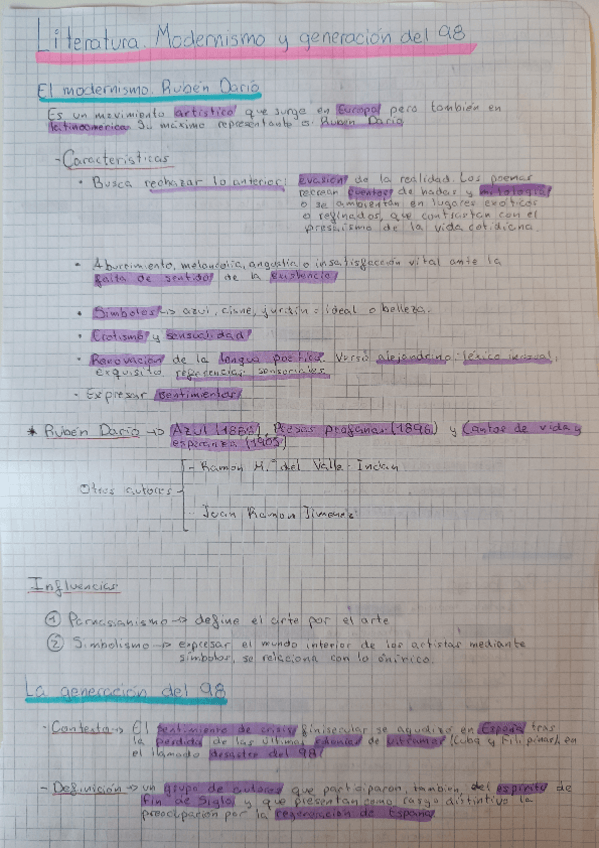 Literatura. Modernismo y generación del 98
El modernismo. Rubén Darío
Es un movimiento artístico que surge en Europa pero también en
latinoamerica. Su máximo representante es Rubén Darío
- Características
• Busca rechazar lo anterior: evasión de la realidad. Los poemas
recrean cuentos de hadas y mitología
o se ambientan en lugares exóticos
o refinados, que contrastan con el
prosaísmo de la vida cotidiana.
• Aburrimiento, melancolía, angustia o insatisfacción vital ante la
falta de sentido de la existencia
• Símbolos -> azul, cisne, jardín = ideal o belleza.
• Erotismo y sensualidad
• Renovación de la lengua poética. Verso alejandrino, léxico inusual,
exquisito, referencias sensoriales
- Expresar sentimientos
* Rubén Darío -> Azul (1888), Prosas profanas (1896) y Cantos de vida y
esperanza (1905)
- Ramón M.ª del Valle-Inclán
Otros autores
- Juan Ramón Jiménez
Influencias
① Parnasianismo -> define el arte por el arte
② Simbolismo -> expresar el mundo interior de los artistas mediante
símbolos, se relaciona con lo onírico.
La generación del 98
- Contexto -> El sentimiento de crisis finisecular se agudizó en España tras
la perdida de las últimas colonias de ultramar (Cuba y Filipinas) en
el llamado desastre del 98
- Definición -> un grupo de autores que participaron, también, del espíritu de
fin de Siglo y que presentan como rasgo distintivo la
preocupación por la regeneración de España